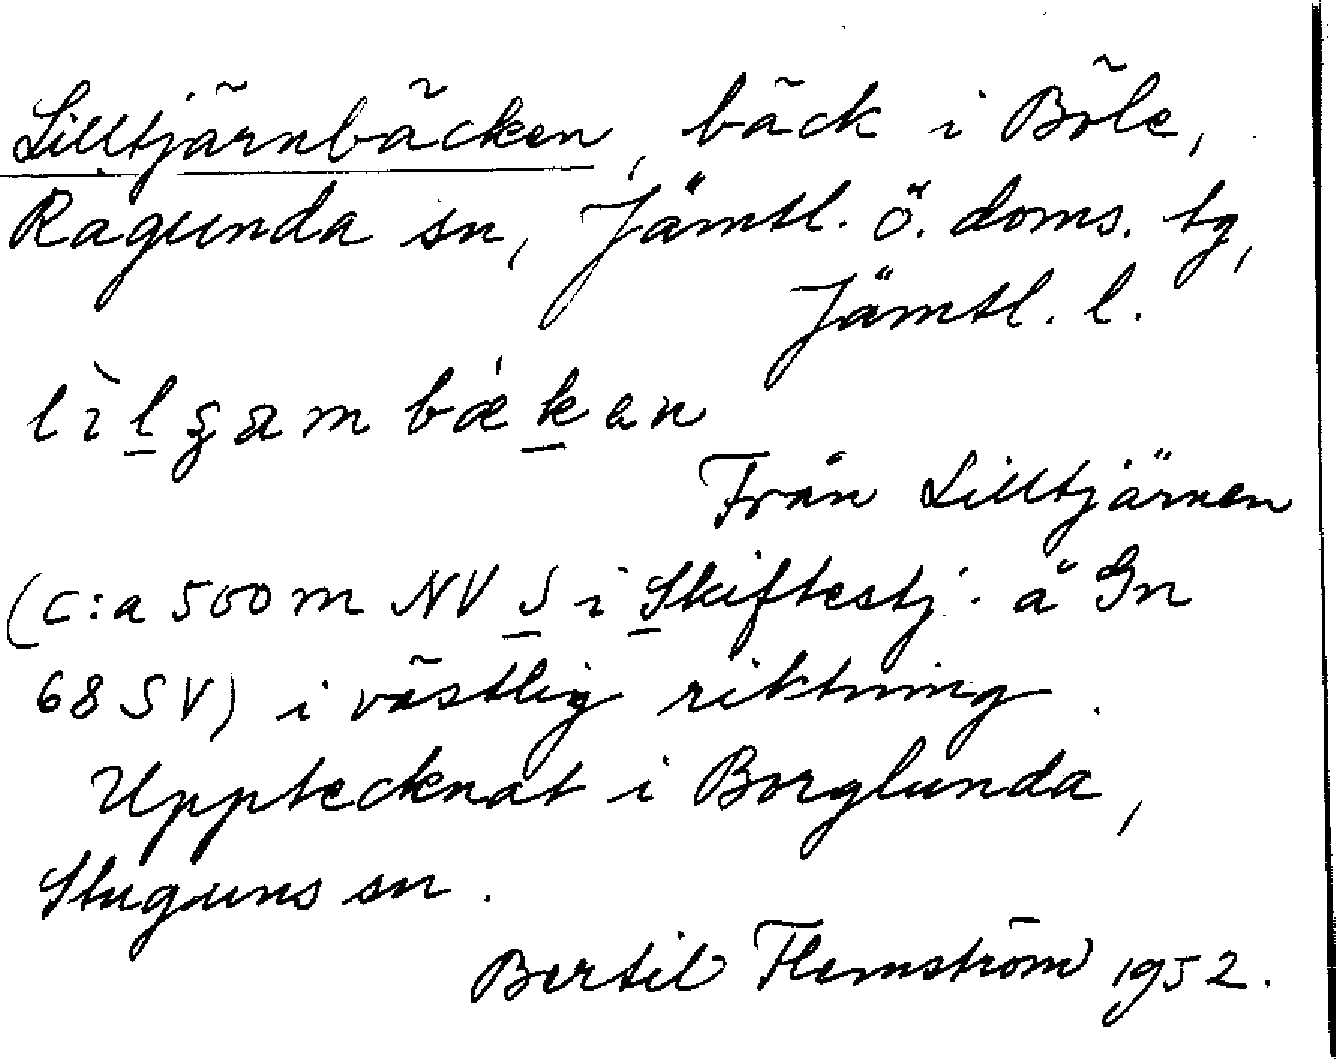 Lilltjärnbäcken, bäck i Böle,
Ragunda sn, Jämtl. ö. doms. tg,
Jämtl. l.
Från Lilltjärnen
(c:a 500 m NV S i Skiftestj. å Gn
68 SV) i västlig riktning.
Upptecknat i Borglunda,
Stuguns sn.
Bertil Flemström 1952.